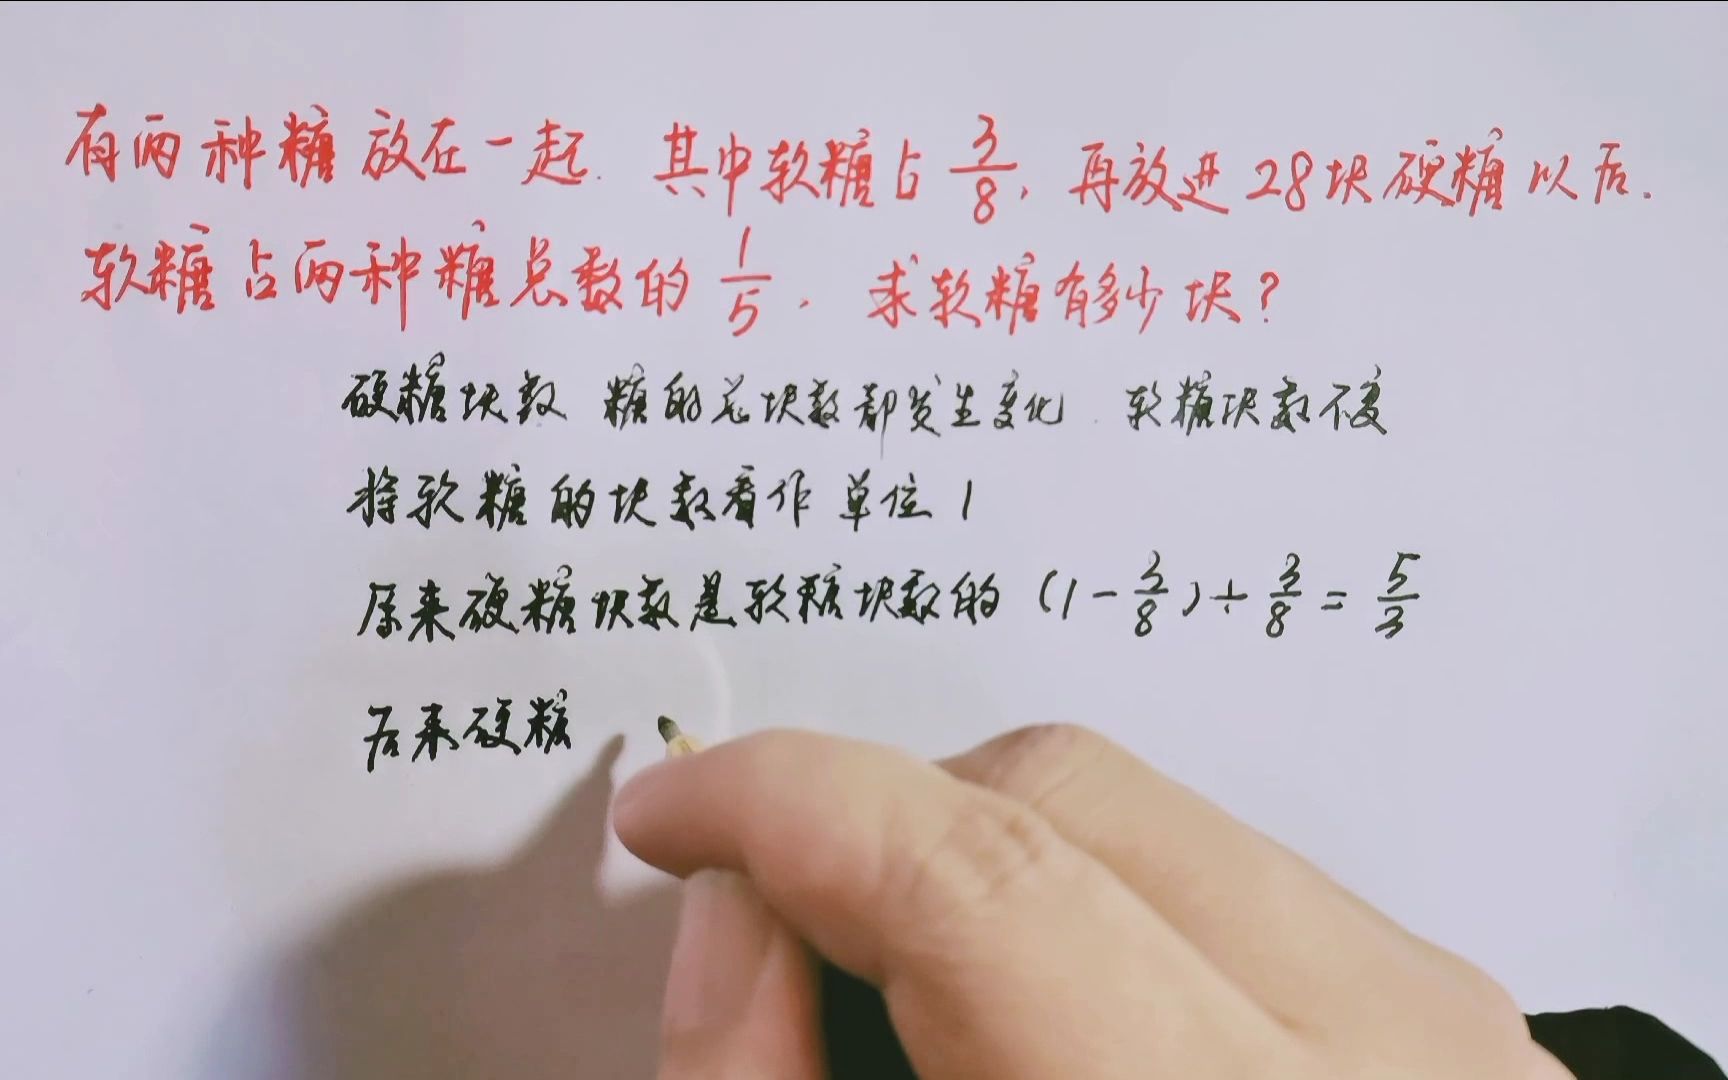 有两种糖放在一起.其中软糖占3/8,再放进28块硬糖以后.
软糖占两种糖总数的1/5.求软糖有多少块?
硬糖块数 糖的总块数都发生变化.软糖块数不变
将软糖的块数看作单位1
原来硬糖块数是软糖块数的(1-3/8)÷3/8=5/3
后来硬糖